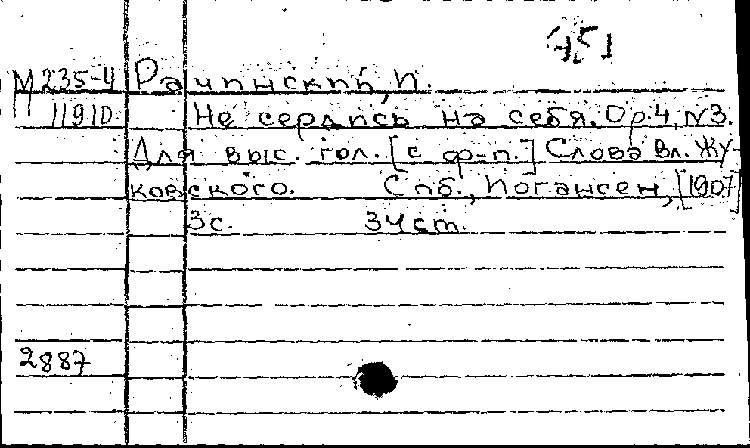 М 235-4 Рачинский, И.
11910 Не сердись на себя. Op. 4, N3.
Для выс. гол. [с ф-п.] Слова Вл. Жу-
ковского. Спб., Иогансен, [1907]
3с. 34 ст.
2887